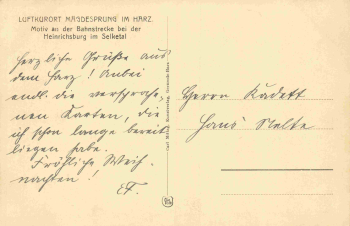 LUFTKURORT MÄGDESPRUNG IM HARZ.
Motiv an der Bahnstrecke bei der
Heinrichsburg im Selketal
Herzliche Grüße aus
dem Harz! Anbei
endl. die versproche-
nen Karten, die
ich schon lange bereit
liegen habe.
Fröhliche Weih-
nachten!
EF.
Herrn Kadett
Hans Stelte